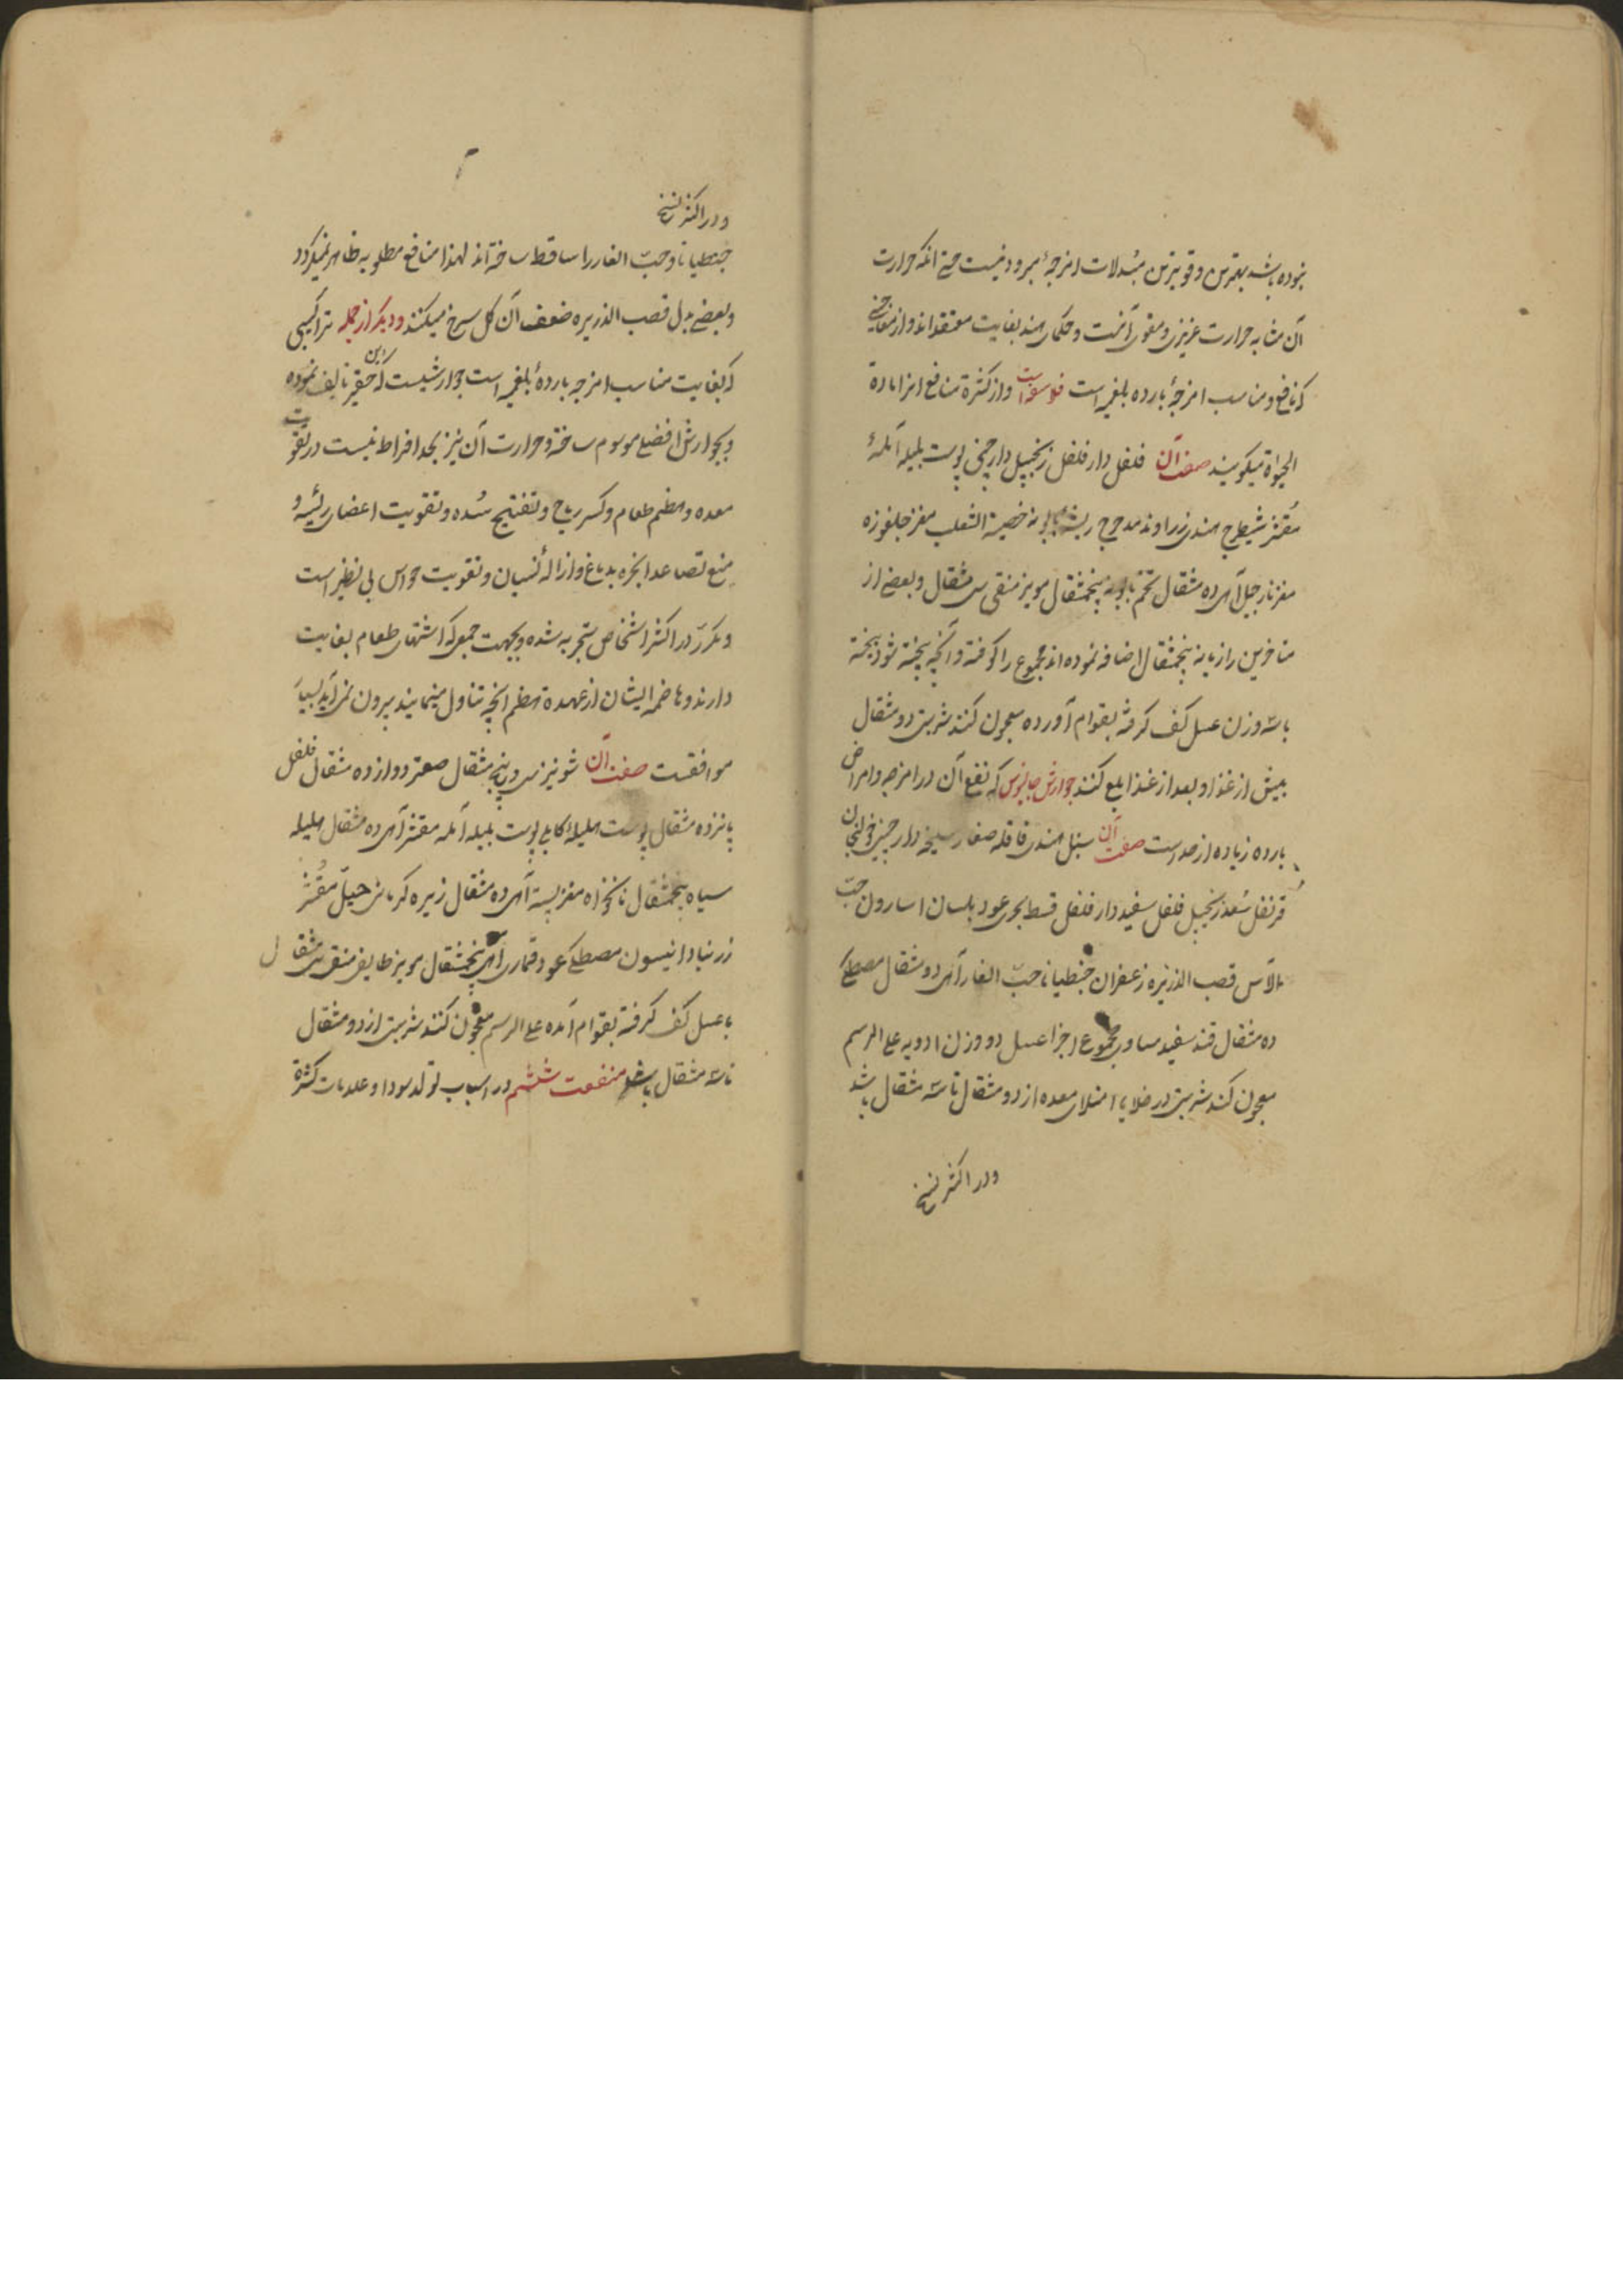 نموده باشد بهترین و قویترین مبدلات امزجهٔ مبرودنیست حتی انکه حرارت
آن مشابه حرارت غریزی و مقوی آنست و حکمای هند بغایت معتقداند و از معاجینی
که نافع و مناسب امزجهٔ بارده بلغمیه است فلوسفواست و از کثرة منافع انرا مادة
الحیوة میکویند صفت آن فلفل دارفلفل زنجبیل دارچینی پوست بلیله آملهٔ
مقشر شیطرج هندی زراوند مدحرج ریشه بابونه خصیة الثعلب مغز جلغوزه
مغز نارجیل از هریک ده مثقال تخم بابونه پنجمثقال مویز منقی سی مثقال و بعضی از
متاخرین رازیانه پنجمثقال اضافه نموده اند مجموع را کوفته و آنچه بیخته شود بیخته
با سه وزن عسل کف کرفته بقوام آورده معجون کنند شربتی دو مثقال
پیش از غذا و بعد از غذا بلع کنند جوارش جالینوس که نفع آن در امزجه و امراض
بارده زیاده از حد است صفت آن سنبل هندی قاقله صغار سلیخه دارچینی خولنجان
قرنفل سعد زنجبیل فلفل سفید دارفلفل قسط بحری عود بلسان اسارون حب
الآس قصب الذریره زعفران جنطیانا حب الغار از هریک دو مثقال مصطکی
ده مثقال قند سفید مساوی مجموع اجزا عسل دو وزن ادویه علی الرسم
معجون کنند شربتی در خلا یا امتلای معده از دو مثقال تا سه مثقال باشد
و در اکثر نسخ
و در اکثر نسخ
جنطیانا و حب الغار را ساقط ساخته اند لهذا منافع مطلوبه ظاهر نمیکردد
و بعضی بدل قصب الذریره ضعف آن کل سرخ میکنند و دیکر از جمله تراکیبی
که بغایت مناسب امزجه باردهٔ بلغمیه است جوارشیست که این حقیر تالیف نموده
و بجوارش افضلی موسوم ساخته و حرارت آن نیز بحد افراط نیست در تقویت
معده و هضم طعام و کسر ریاح و تفتیح سده و تقویت اعضای رئیسه و
منع تصاعد ابخره بدماغ و ازالهٔ نسیان و تقویت حواس بی نظیر است
و مکرر در اکثر اشخاص تجربه شده و بجهت جمعی که اشتهای طعام بغایت
دارند و هاضمه ایشان از عهدهٔ هضم آنچه تناول مینمایند بیرون نمی آید بسیار
موافقست صفت آن شونیز سی و پنج مثقال صعتر دوازده مثقال فلفل
پانزده مثقال پوست هلیلهٔ کابلی پوست بلیله آمله مقشر از هریک ده مثقال هلیله
سیاه پنجمثقال نانخواه مغز پسته از هریک ده مثقال زیره کرمانی حیل مقشر
زرنباد انیسون مصطکی عود قماری از هریک پنجمثقال مویز طایفی منقی سی مثقال
با عسل کف کرفته بقوام آمده علی الرسم معجون کنند شربتی از دو مثقال
تا سه مثقال باشد منفعت ششم در اسباب تولد سودا و علامات کثرة